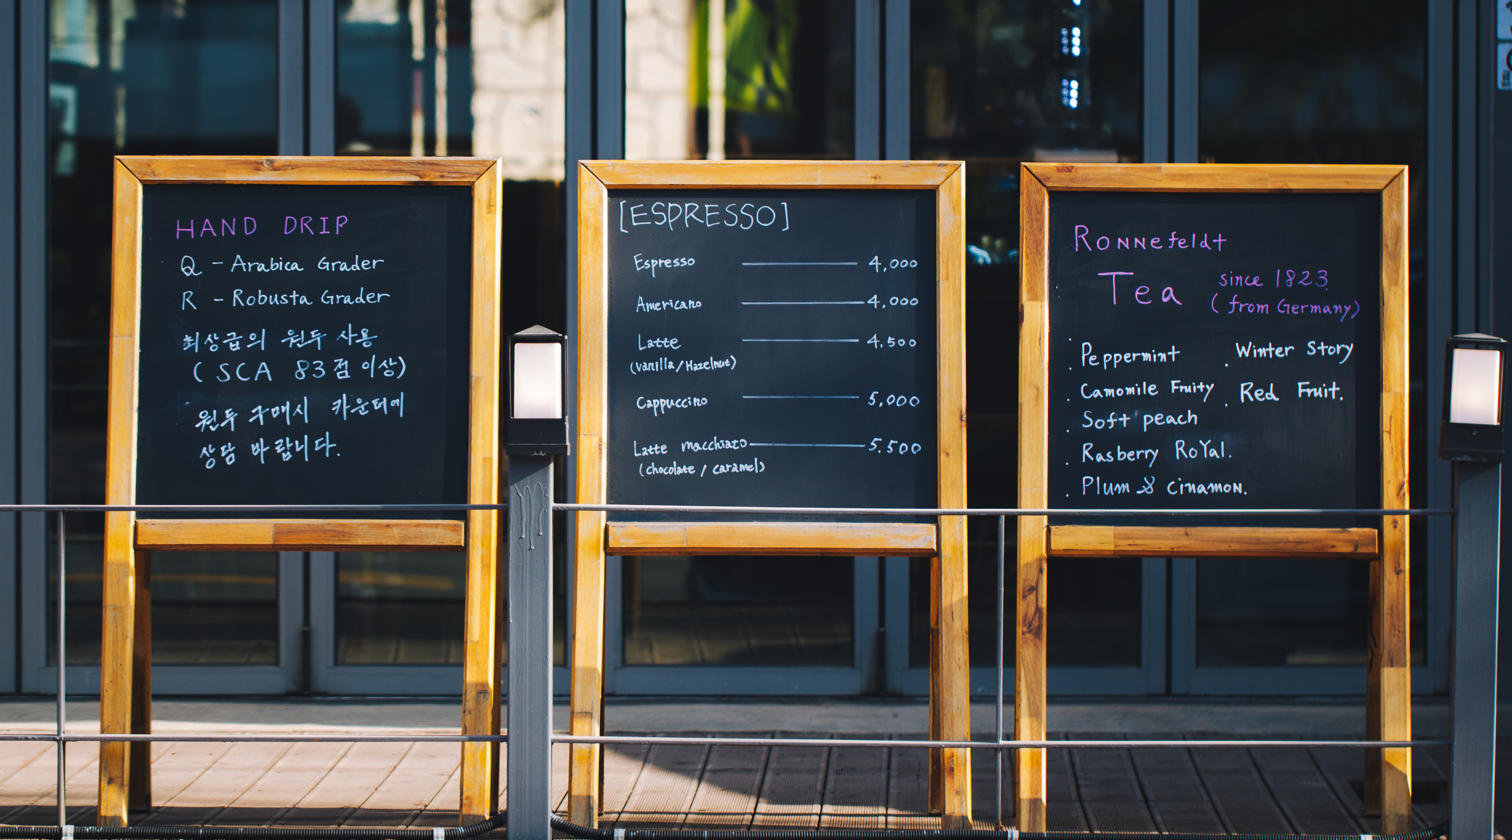 HAND DRIP
Q - Arabica Grader
R - Robusta Grader
최상급의 원두 사용
( SCA 83점 이상)
원두 구매시 카운터에
상담 바랍니다.
[ESPRESSO]
Espresso 4,000
Americano 4,000
Latte 4,500
(vanilla / Hazelnut)
Cappuccino 5,000
Latte macchiato 5,500
(chocolate / caramel)
Ronnefeldt
Tea since 1823
(from Germany)
· Peppermint · Winter Story
· Camomile Fruity · Red Fruit.
· Soft peach
· Rasberry RoYal.
· Plum & Cinamon.